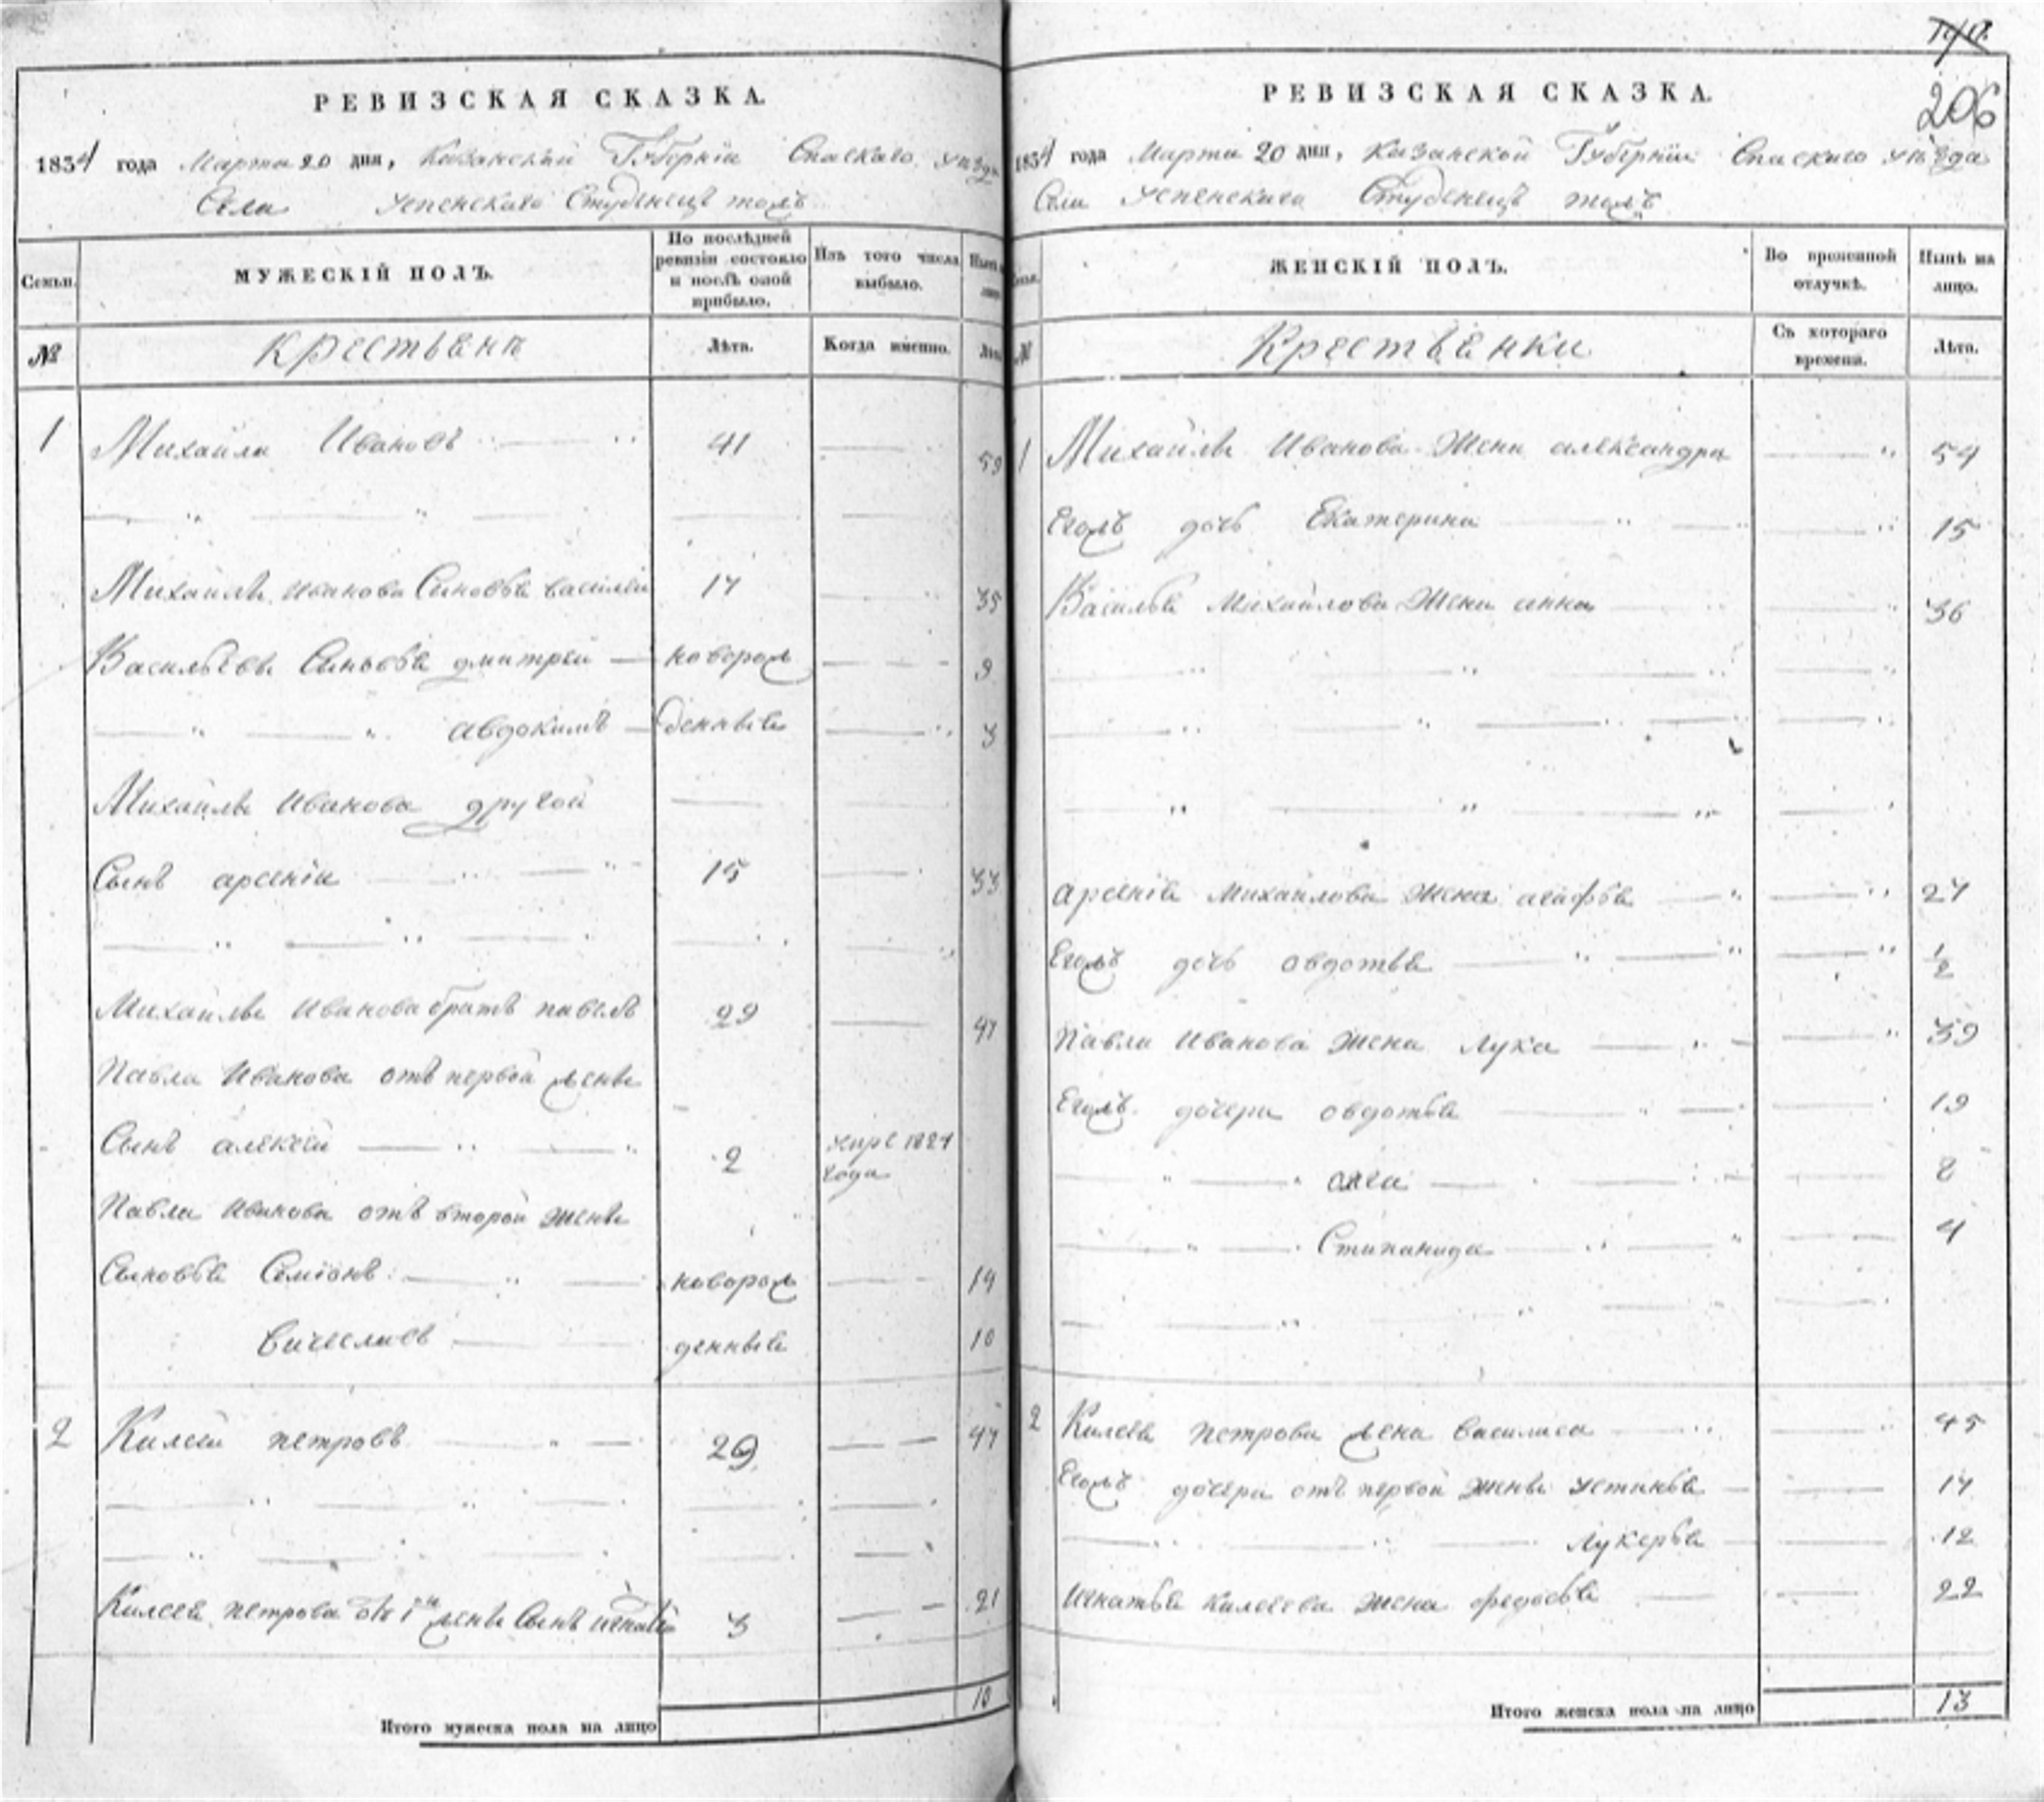 206
РЕВИЗСКАЯ СКАЗКА.
1834 года Марта 20 дня, Казанской Губернїи Спаскаго уѣзда
Села Успенскаго Студенецъ тожъ
Семьи.
МУЖЕСКІЙ ПОЛЪ.
По послѣдней ревизіи состояло и послѣ оной прибыло.
Изъ того числа выбыло.
№
Крестьянъ
Лѣта.
Когда именно.
1 Михайла Ивановъ 41 59
Михайлы Иванова Сыновья василеи 17 35
Васильевы Сыновья дмитреи новорож 9
авдокимъ денныя 3
Михайлы Иванова другой
Сынъ арсенїи 15 33
Михайлы Иванова братъ павелъ 29 47
Павла Иванова отъ первой жены
Сынъ алексеи 2 умре 1827
года
Павла Иванова отъ второй жены
Сыновья Семїонъ новорож 14
вичеславъ денныя 10
2 Килеи петровъ 29 47
Килея петрова отъ 1й жены Сынъ игнатеи 3 21
10
Итого мужеска пола на лицо
РЕВИЗСКАЯ СКАЗКА.
1834 года Марта 20 дня, Казанской Губернїи Спаскаго уѣзда
Села Успенскаго Студенецъ тожъ
ЖЕНСКІЙ ПОЛЪ.
Во временной отлучкѣ.
Нынѣ на лицо.
№
Крестьянки
Съ котораго времени.
Лѣта.
1 Михайлы Иванова Жена александра 54
Егожъ дочь Екатерина 15
Василья Михайлова Жена анна 36
арсенїя Михаилова Жена агафья 27
Егожъ дочь овдотья 1/2
Павла Иванова жена Лука 39
Егожъ дочери овдотья 19
8
Стипанида 4
2 Килея Петрова жена василиса 45
Егожъ дочери отъ первой жены устинья 17
Лукерья 12
Игнатья Килеева жена федосья 22
Итого женска пола на лицо 13